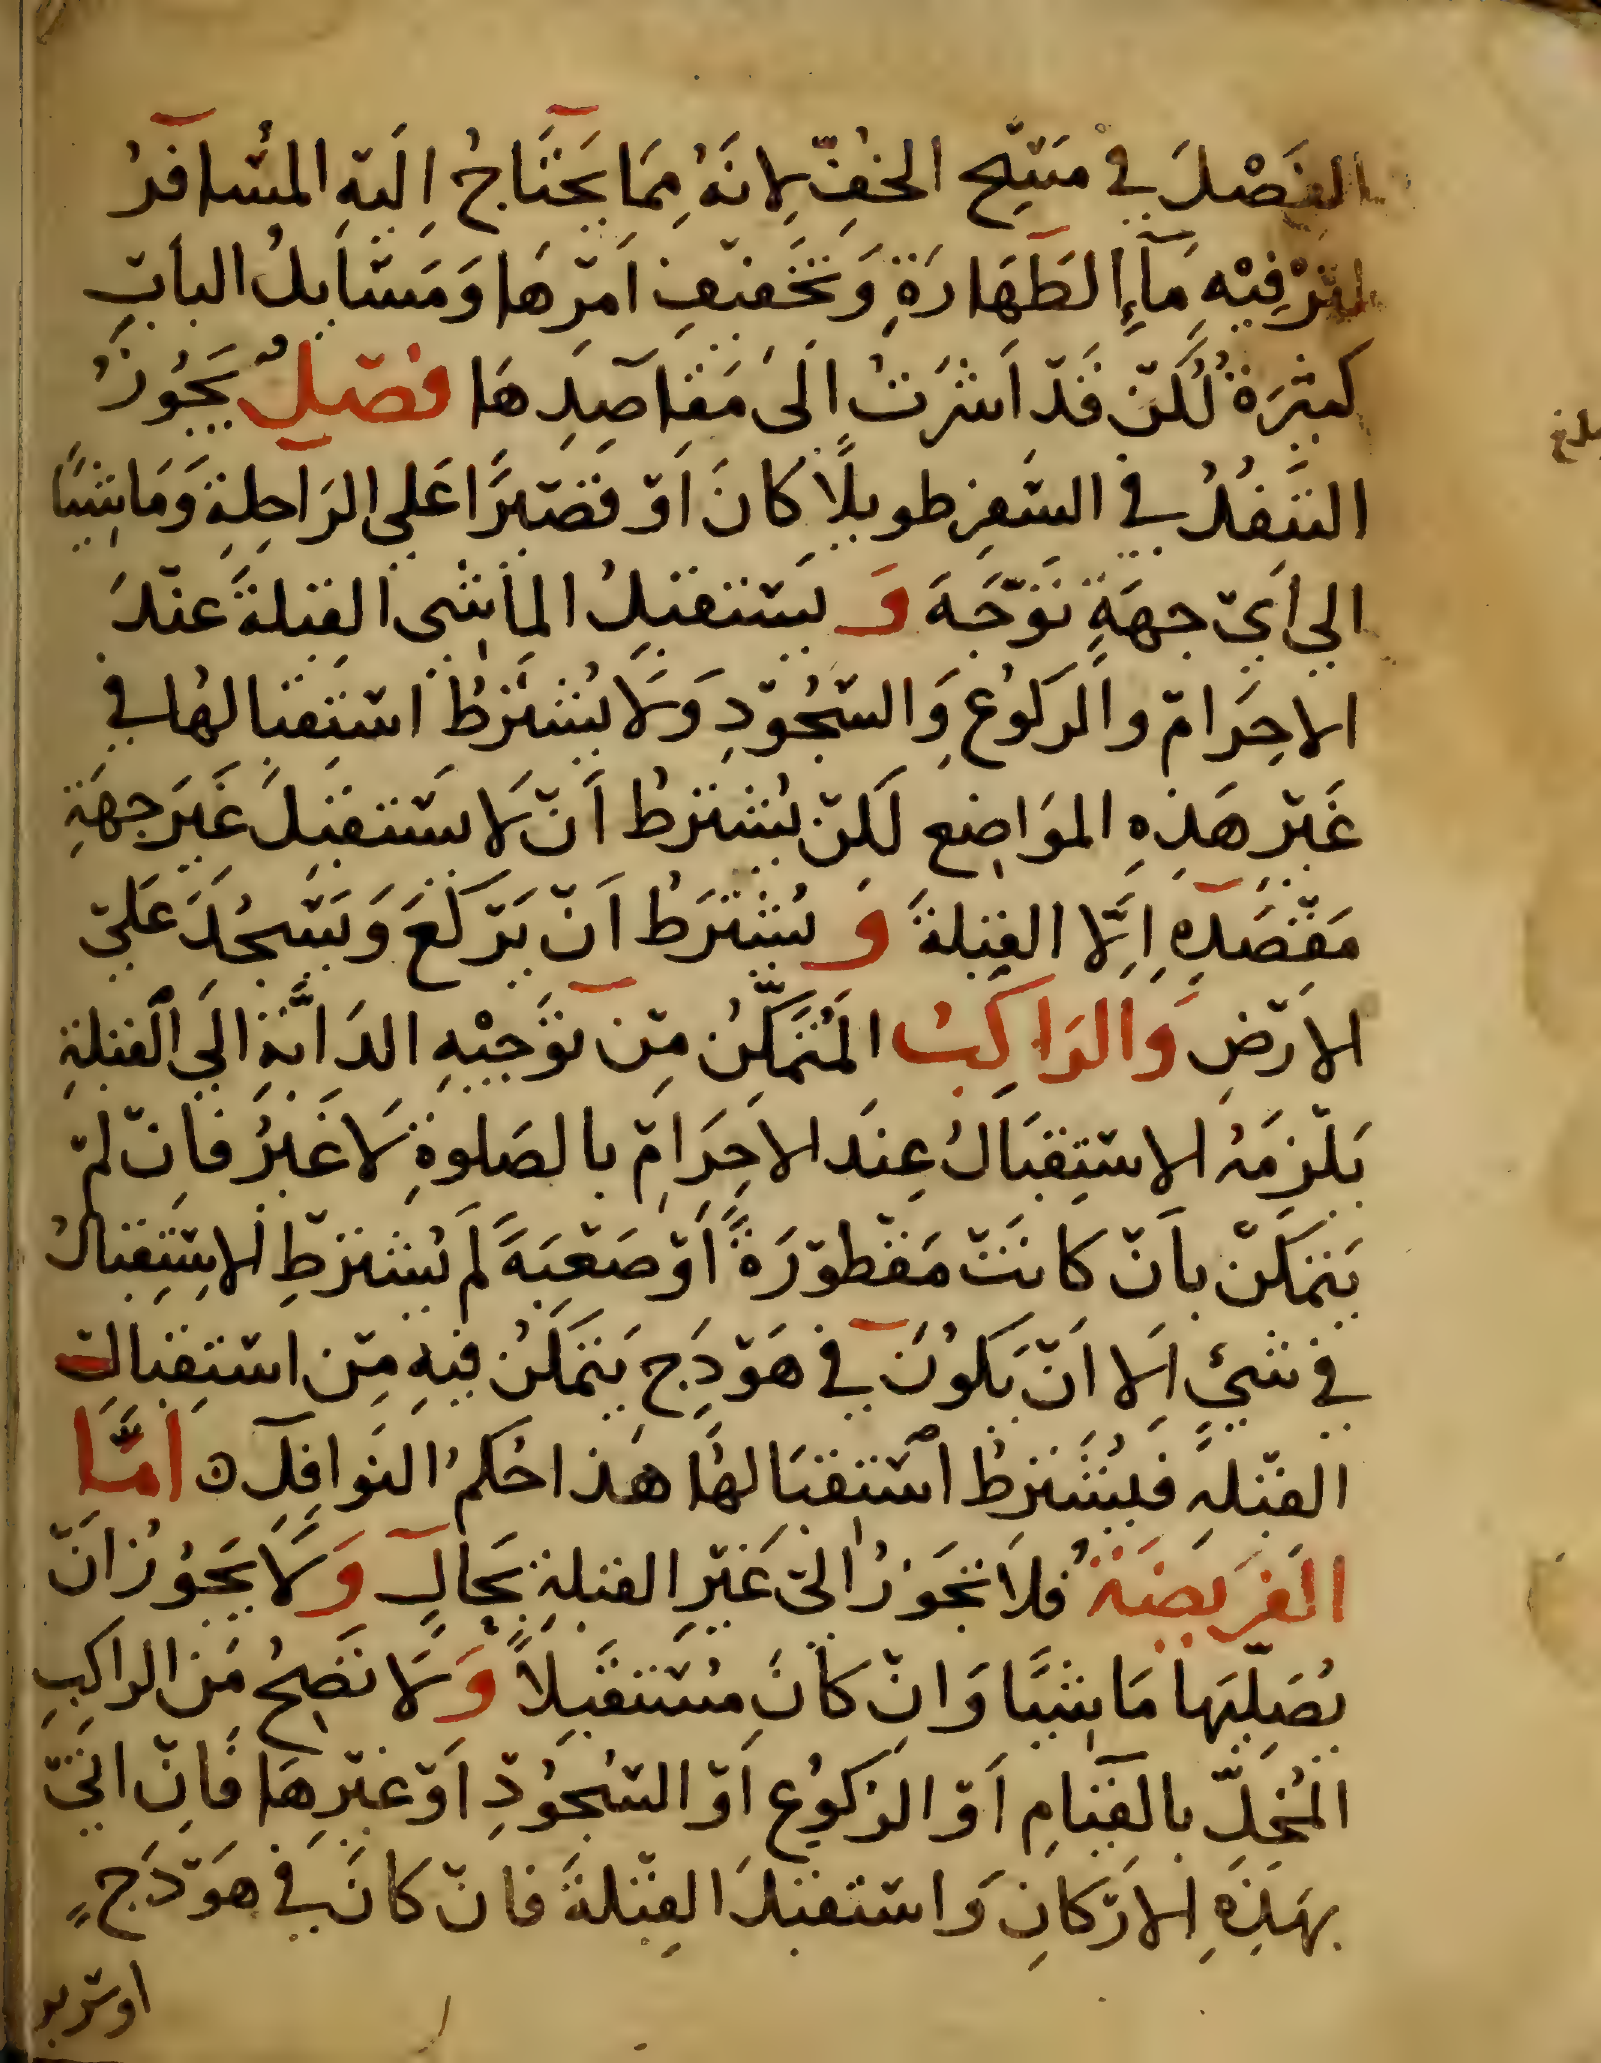 الفَصْلَ في مَسْحِ الخُفِّ لِانَّهُ مِمَّا يَحتَاجُ اِلَيهِ المسَافرُ
لتَرْفِيْهِ مَآءِ الطَهَارَةِ وَتخَفيفِ اَمرِهَا وَمَسَايلُ البابِ
كثيرَةٌ لَكن قَد اَشرَتُ الَى مَقاصِدِهَا فصلٌ يَجُوزُ
التَّنَفُّلُ في السَّفرِ طويلًا كانَ اَو قصيرًا عَلى الرَاحِلةِ وَمَاشِيًا
الى اَيّ جهَةٍ تَوَجَّهَ وَ يستقبلُ الماشى القبلةَ عندَ
الاحرَام والركوُع وَالسجُودِ وَلَا يُشترَطُ استِقبالهُا في
غَيرِ هَذِهِ الموَاضِع لَكن يُشترطُ اَن لَا يستَقبلَ غَيرَ جهَةِ
مَقصَدِهِ اِلَّا القِبلةَ وَ يُشترَطُ اَن يَركَعَ وَيَسجُدَ عَلى
الارضِ وَالرَاكِبُ المُتَمَكِّنُ مِن تَوَجيْهِ الدَابَّةِ اِلَى القبلةِ
يَلزمَهُ الاستِقبَالُ عِندَ الاحِرَامِ بالصَلوةِ لَا غَيرُ فاِن لم
يَتمَكن باَن كانَت مَقطورَةً اَو صَعبَةً لَم يُشترطِ الاِستِقبالُ
في شيءٍ اِلا اَن يَكوُنَ في هَودَجٍ يَتمَكنُ فيهِ مِن استِقبالِ
القبلةِ فيُشترطُ استقبَالهُا هَذا حُكمُ النَوافِلِ ه اَمَّا
الفَرِيضَةُ فلَا تجَوزُ الىَ غَيرِ القبلةِ بحَالٍ وَ لَا يَجُوزُ اَن
يُصَلّيَهَا مَاشِيًا وَاِن كانَ مُستَقبِلًا وَ لَا تَصِحُّ مِنَ الراكبِ
المُخلِّ بالقيَامِ اَو الرُكوُع اَو السُجُودِ اَو غَيرِهَا فَاِن اَتَى
بهَذِهِ الاَركانِ وَاستَقبلَ القِبلةَ فان كانَ في هَودَجٍ
اوسرير
بلغ